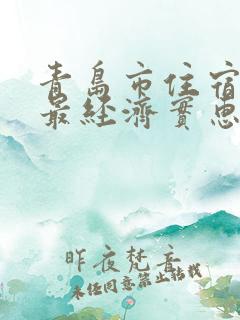 青島市住宿
最經濟實惠
昨夜梵音
未经同意禁止转载